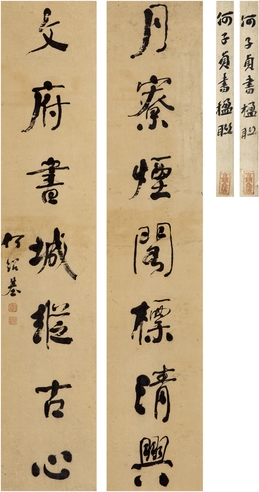 何子貞書楹聯
何子貞書楹聯
月寮煙閣標清興
文府書城縱古心
何紹基